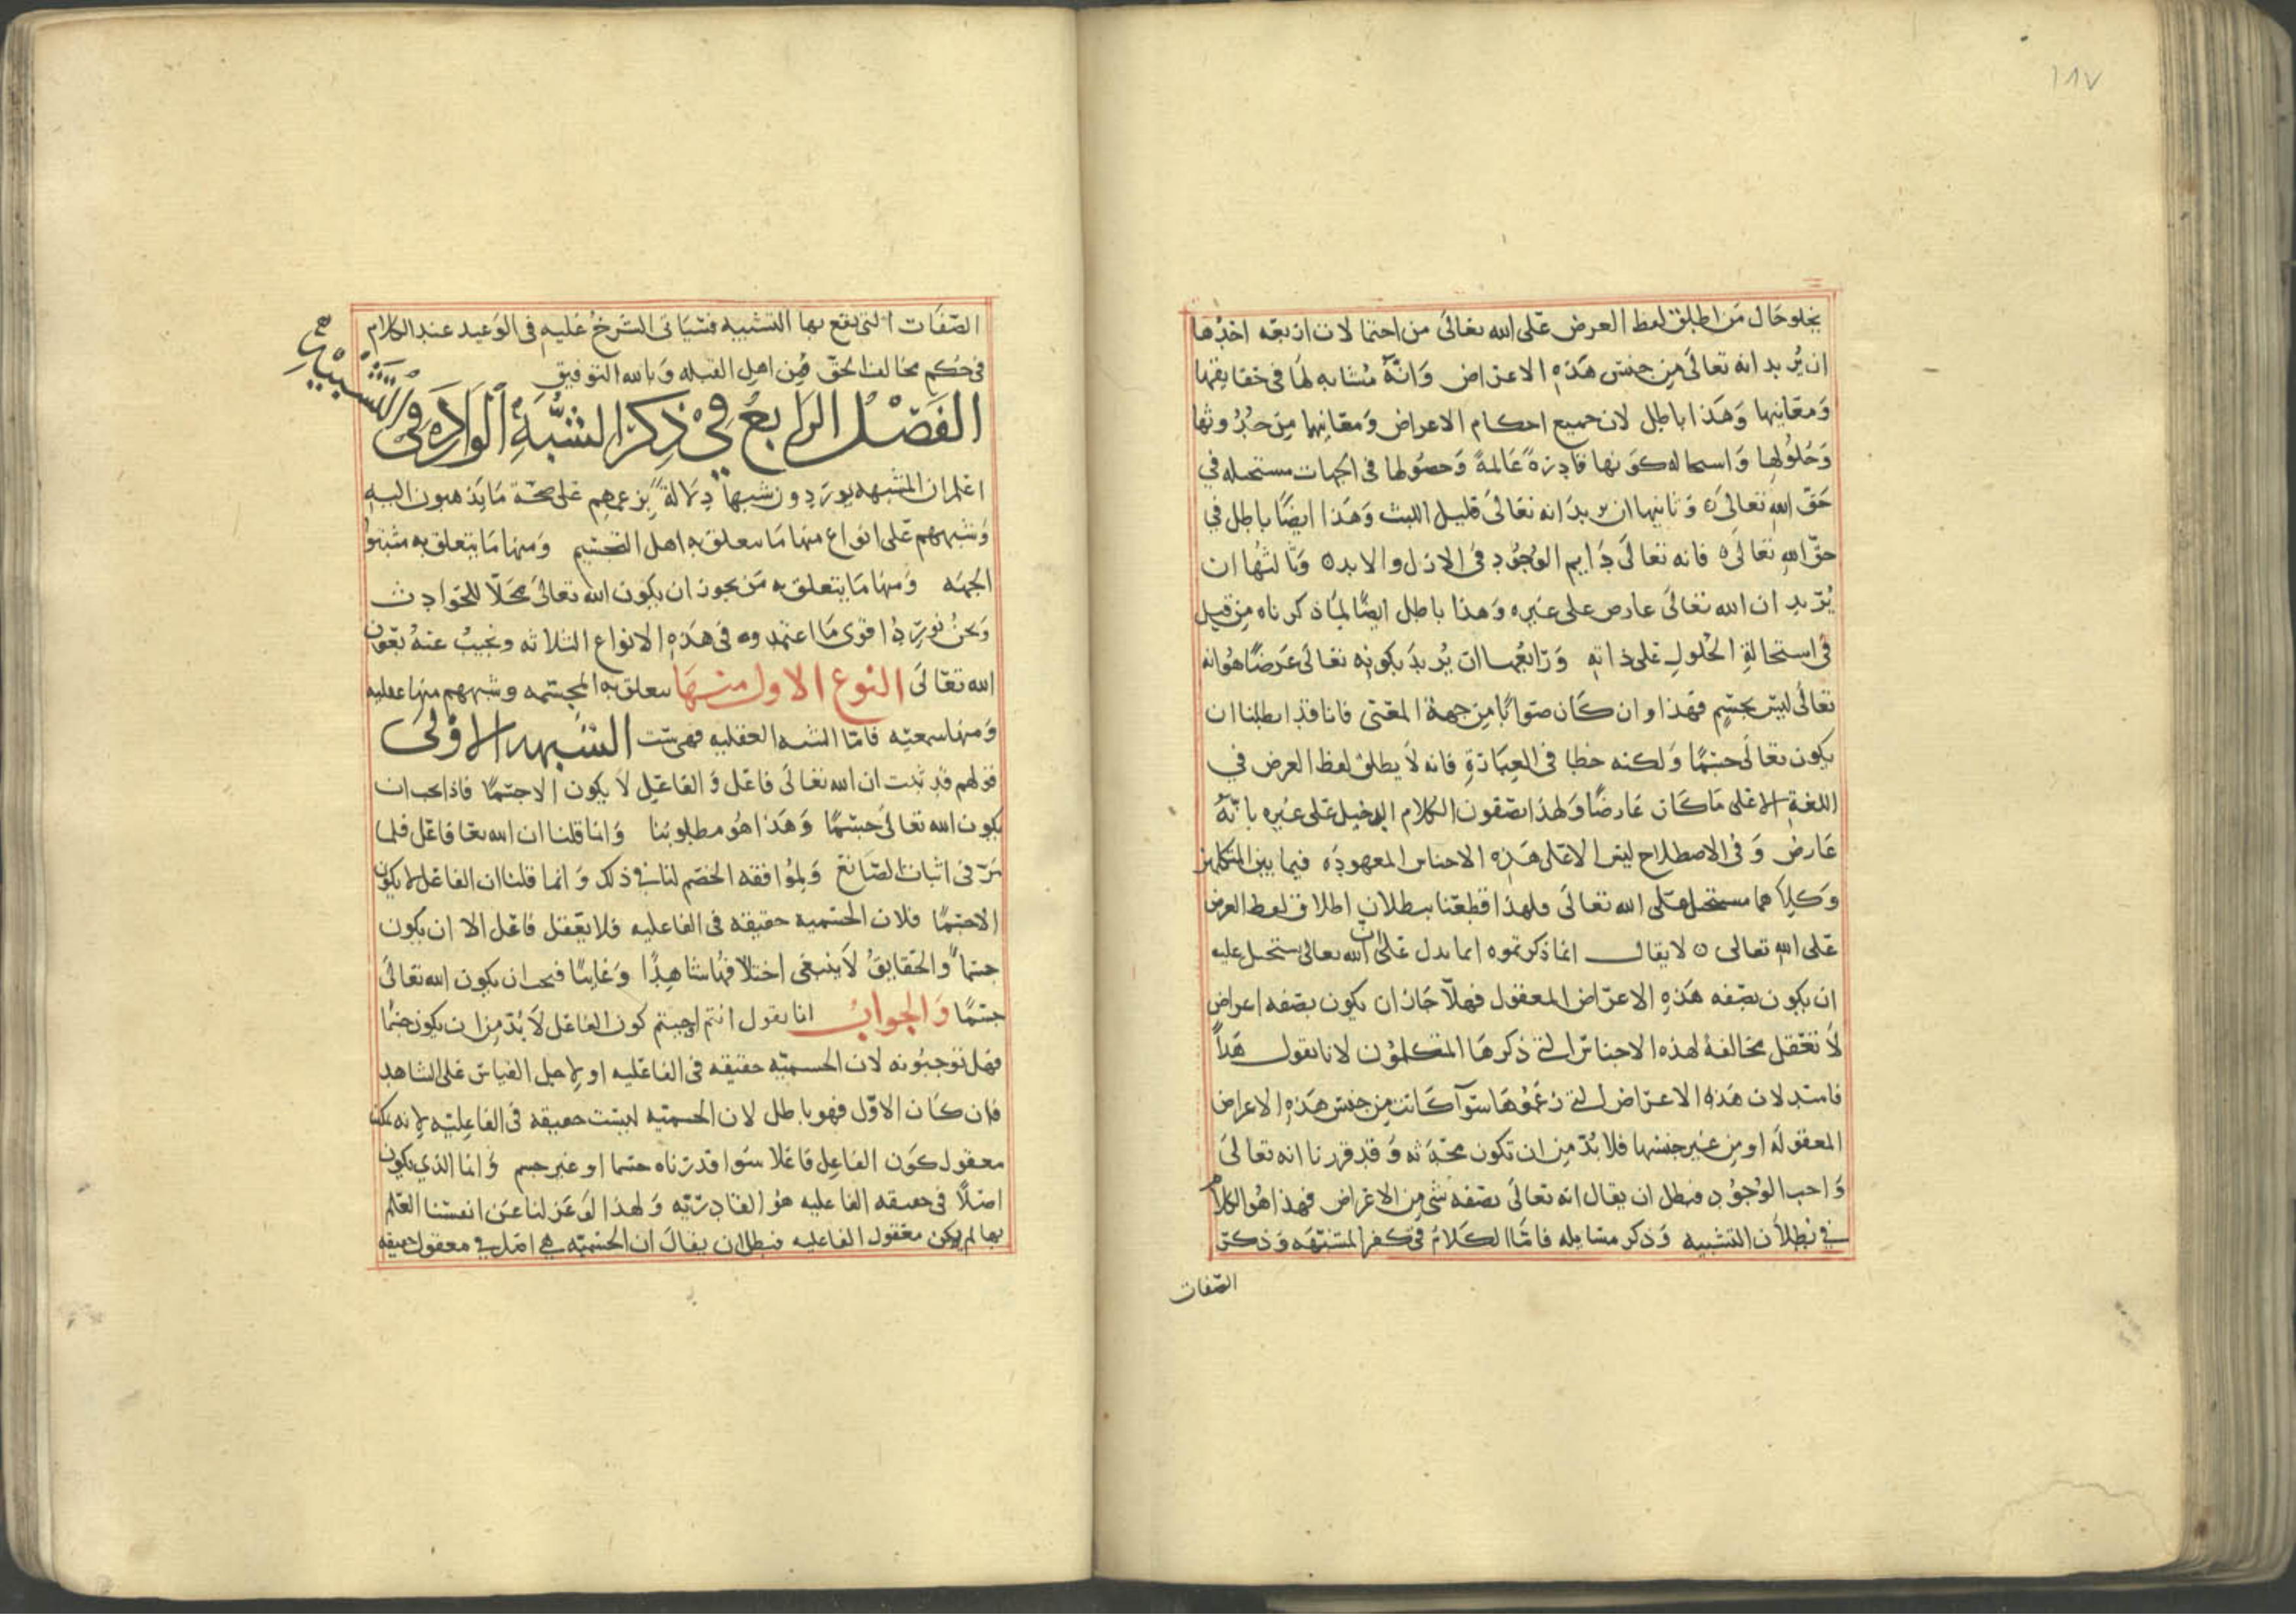 ١٨٧
يخلو حال من اطلق لفظ العرض على الله تعالى من احتمالات اربعه احدها
ان يريد انه تعالى من جنس هذه الاعراض وانه مشابه لها في حقايقها
ومعانيها وهذا باطل لان جميع احكام الاعراض ومعانيها من حدوثها
وحلولها واستحاله كونها قادرة عالمة وحصولها في الجهات مستحيله في
حق الله تعالى ه وثانيها ان يريد انه تعالى قليل اللبث وهذا ايضا باطل في
حق الله تعالى ه فانه تعالى دايم الوجود في الازل والابد ه وثالثها ان
يريد ان الله تعالى عارض على غيره وهذا باطل ايضا لما ذكرناه من قبل
في استحالة الحلول على ذاته ورابعها ان يريد بكونه تعالى عرضا هو انه
تعالى ليس بجسم فهذا وان كان صوابا من جهة المعنى فانا قد ابطلنا ان
يكون تعالى جسما ولكنه خطا في العبارة فانه لا يطلق لفظ العرض في
اللغة الا على ما كان عارضا ولهذا يصفون الكلام الدخيل على غيره بانه
عارض وفي الاصطلاح ليس الا على هذه الاجناس المعهوده فيما بين المتكلمين
وكلاهما مستحيل على الله تعالى فلهذا قطعنا ببطلان اطلاق لفظ العرض
على الله تعالى ن لا يقال انما ذكرتموه انما يدل على ان الله تعالى يستحيل عليه
ان يكون بصفه هذه الاعراض المعقول فهلا جاز ان يكون بصفه اعراض
لا تعقل مخالفة لهذه الاجناس التي ذكرها المتكلمون لانا نقول هذا
فاسد لان هذه الاعراض التي زعموها سوآ كانت من جنس هذه الاعراض
المعقوله او من غير جنسها فلا بد من ان تكون محدثه وقد قررنا انه تعالى
واجب الوجود فبطل ان يقال انه تعالى بصفه شي من الاعراض فهذا هو الكلام
في بطلان التشبيه وذكر مسايله فاما الكلام في كفر المشبهه وذكر
الصفات
الصفات التي يقع بها التشبيه فسياتي الشرح عليه في الوعيد عند الكلام
في حكم مخالف الحق من اهل القبله وبالله التوفيق
الفصل الرابع في ذكر الشبه الوارده في التشبيه
اعلم ان المشبهه يوردون شبها دلالة بزعمهم على صحة ما يذهبون اليه
وشبههم على انواع منها ما يتعلق به اهل التجسيم ومنها ما يتعلق به مثبتوا
الجهه ومنها ما يتعلق به من يجوز ان يكون الله تعالى محلا للحوادث
ونحن نورد اقوى ما اعتمدوه في هذه الانواع الثلاثه ونجيب عنه بعون
الله تعالى النوع الاول منها يتعلق به المجسمه وشبههم منها عقليه
ومنها سمعيه فاما الشبه العقليه فهي ست الشبهه الاولى
قولهم قد ثبت ان الله تعالى فاعل والفاعل لا يكون الا جسما فاذا يجب ان
يكون الله تعالى جسما وهذا هو مطلوبنا وانما قلنا ان الله تعا فاعل فلما
مر في اثبات الصانع ولموافقه الخصم لنا في ذلك وانما قلنا ان الفاعل لا يكون
الا جسما فلان الجسميه حقيقه في الفاعليه فلا يعقل فاعل الا ان يكون
جسما والحقايق لا ينبغي اختلافها شاهدا وغايبا فيجب ان يكون الله تعالى
جسما والجواب انا نقول انتم اوجبتم كون الفاعل لا بد من ان يكون جسما
فهل توجبونه لان الجسميه حقيقه في الفاعليه او لاجل القياس على الشاهد
فان كان الاول فهو باطل لان الجسميه ليست حقيقه في الفاعليه لانه يمكن
معقول كون الفاعل فاعلا سوا قدرناه جسما او غير جسم وانما الذي يكون
اصلا في حقيقه الفاعليه هو القادريه ولهذا لو عزلنا عن انفسنا العلم
بها لم يكن معقول الفاعليه فبطل ان يقال ان الجسميه هي اصل في معقول حقيقه